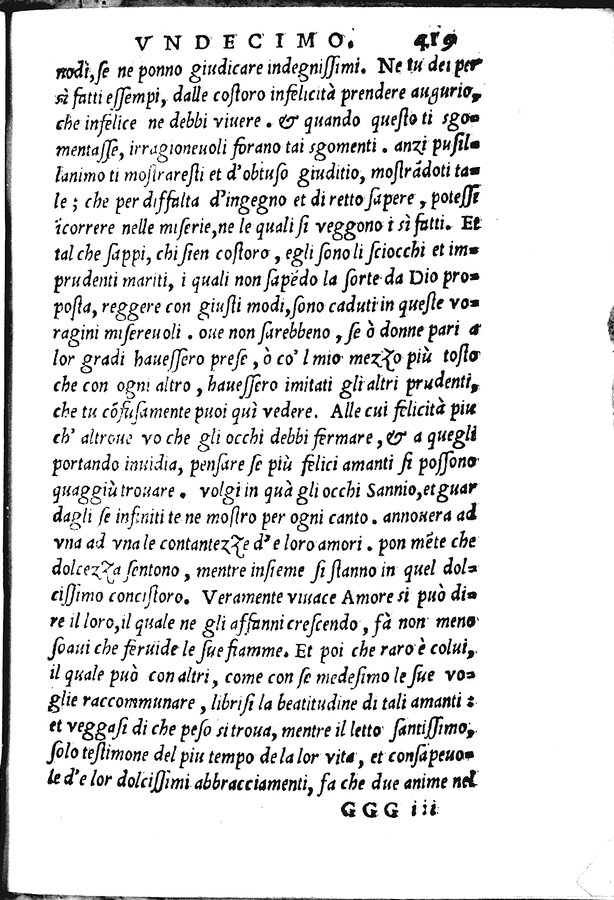 VNDECIMO. 419
nodi, se ne ponno giudicare indegnissimi. Ne tu dei per
sì fatti essempi, dalle costoro infelicità prendere augurio,
che infelice ne debbi viuere. & quando questo ti sgo=
mentasse, irragioneuoli forano tai sgomenti. anzi pusil=
lanimo ti mostraresti et d'obtuso giuditio, mostrãdoti ta=
le; che per diffalta d'ingegno et di retto sapere, potessi
ĩcorrere nelle miserie, ne le quali si veggono i sì fatti. Et
tal che sappi, chi sien costoro, egli sono li sciocchi et im=
prudenti mariti, i quali non sapẽdo la sorte da Dio pro=
posta, reggere con giusti modi, sono caduti in queste vo=
ragini misereuoli. oue non sarebbeno, se ò donne pari a
lor gradi hauessero prese, ò co'l mio mezzo più tosto
che con ogni altro, hauessero imitati gli altri prudenti,
che tu cõfusamente puoi quì vedere. Alle cui felicità piu
ch'altroue vo che gli occhi debbi fermare, & a quegli
portando inuidia, pensare se più felici amanti si possono
quaggiù trouare. volgi in quà gli occhi Sannio, et guar
dagli se infiniti te ne mostro per ogni canto. annouera ad
vna ad vna le contantezze d'e loro amori. pon mẽte che
dolcezza sentono, mentre insieme si stanno in quel dol=
cissimo concistoro. Veramente viuace Amore si può di=
re il loro, il quale ne gli affanni crescendo, fà non meno
soaui che feruide le sue fiamme. Et poi che raro è colui,
il quale può con altri, come con se medesimo le sue vo=
glie raccommunare, librisi la beatitudine di tali amanti:
et veggasi di che peso si troua, mentre il letto santissimo,
solo testimone del piu tempo de la lor vita, et consapeuo=
le d'e lor dolcissimi abbracciamenti, fa che due anime nel
GGG iii